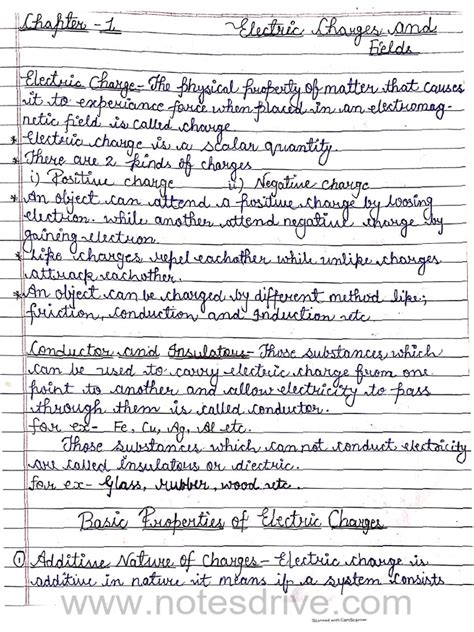 Chapter - 1 Electric Charges and
Fields
Electric Charge - The physical property of matter that causes
it to experiance force when placed in an electromag-
netic field is called charge
* Electric charge is a scalar quantity.
* There are 2 kinds of charges
i) Positive charge ii) Negative charge
* An object can attend a positive charge by loosing
electron. while another attend negative charge by
gaining electron.
* Like charges repel eachother while unlike charges
attrack eachother.
* An object can be charged by different method like;
friction, conduction and Induction etc.
Conductor and Insulators - Those substances which
can be used to carry electric charge from one
point to another and allow electricity to pass
through them is called conductor.
for ex- Fe, Cu, Ag, Al etc.
Those substances which can not conduct electricity
are called insulators or diectric.
for ex- Glass, rubber, wood etc.
Basic Properties of Electric Charges
① Additive Nature of Charges - Electric charge is
additive in nature it means if a system consists
www.notesdrive.com
Scanned with CamScanner